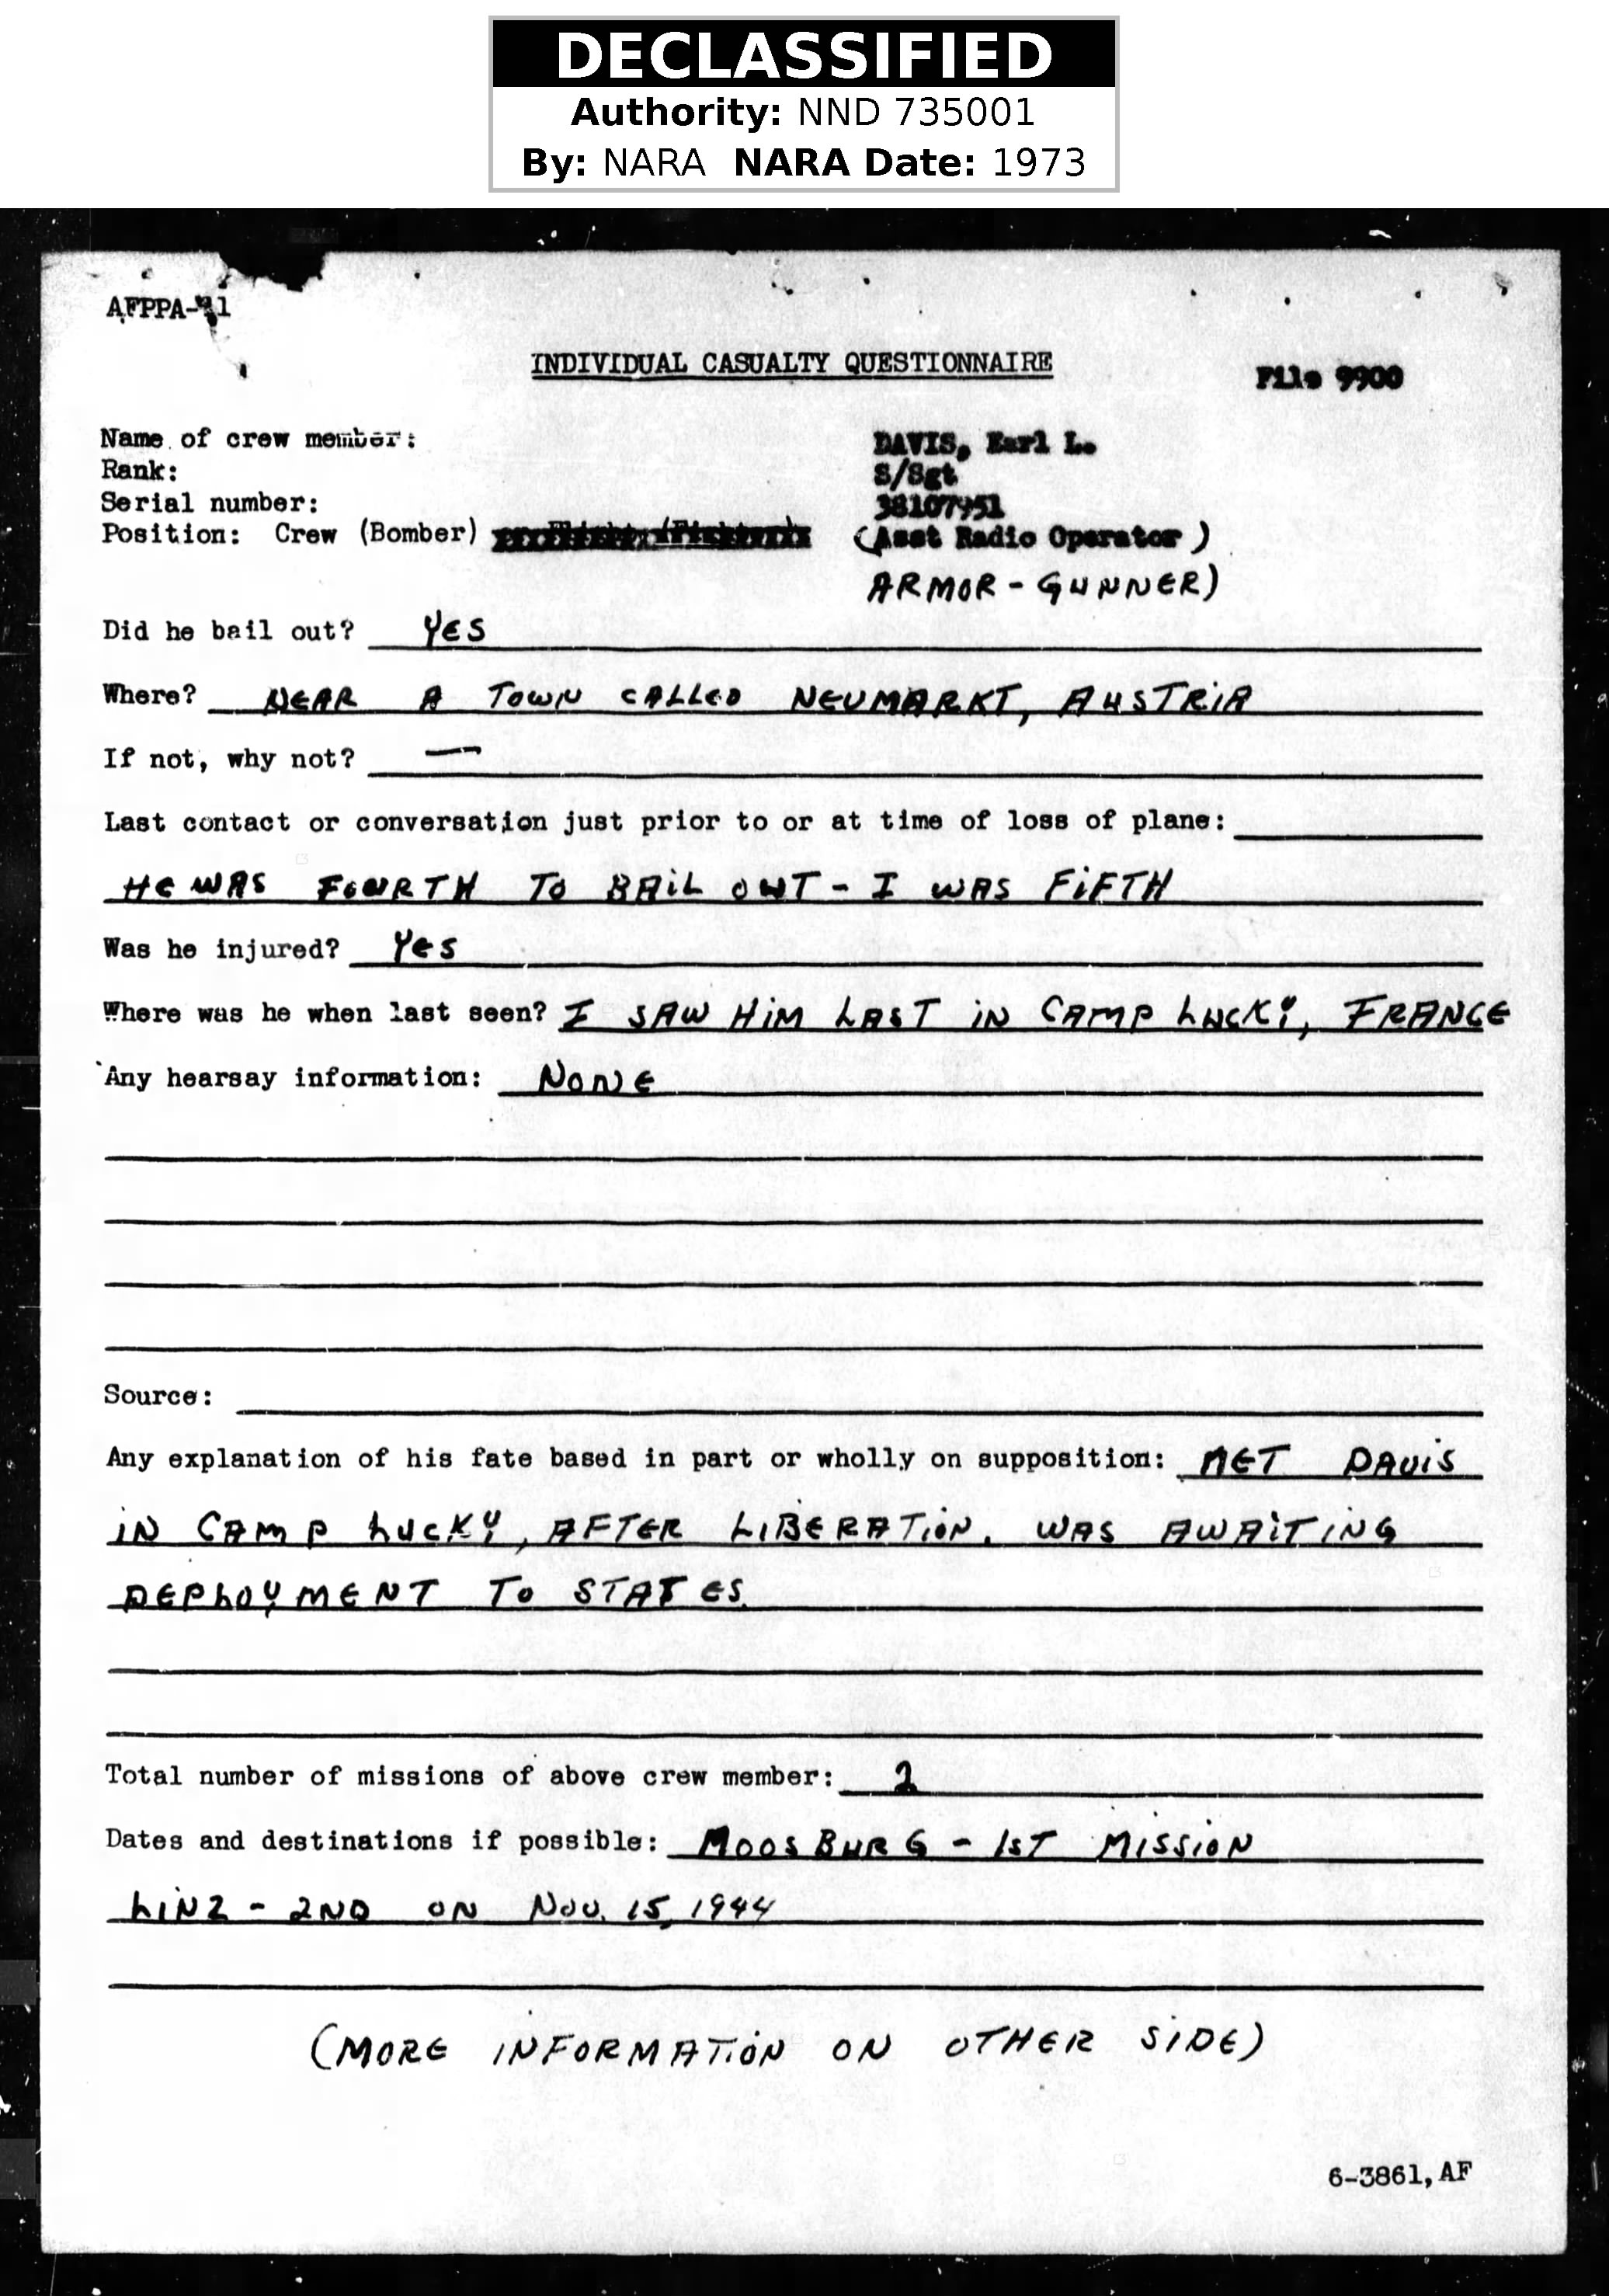 DECLASSIFIED
Authority: NND 735001
By: NARA NARA Date: 1973
INDIVIDUAL CASUALTY QUESTIONNAIRE
File 9900
Name of crew member: DAVIS, Earl L.
Rank: S/Sgt
Serial number: 38107951
Position: Crew (Bomber) (Asst Radio Operator )
ARMOR - GUNNER)
Did he bail out? YES
Where? NEAR A TOWN CALLED NEUMARKT, AUSTRIA
If not, why not? —
Last contact or conversation just prior to or at time of loss of plane:
HE WAS FOURTH TO BAIL OUT - I WAS FIFTH
Was he injured? Yes
Where was he when last seen? I SAW HIM LAST IN CAMP LUCKY, FRANCE
Any hearsay information: NONE
Source:
Any explanation of his fate based in part or wholly on supposition: MET DAVIS
IN CAMP LUCKY, AFTER LIBERATION. WAS AWAITING
DEPLOYMENT TO STATES.
Total number of missions of above crew member: 2
Dates and destinations if possible: MOOSBURG - 1ST MISSION
LINZ - 2ND ON NOV. 15, 1944
(MORE INFORMATION ON OTHER SIDE)
6-3861, AF